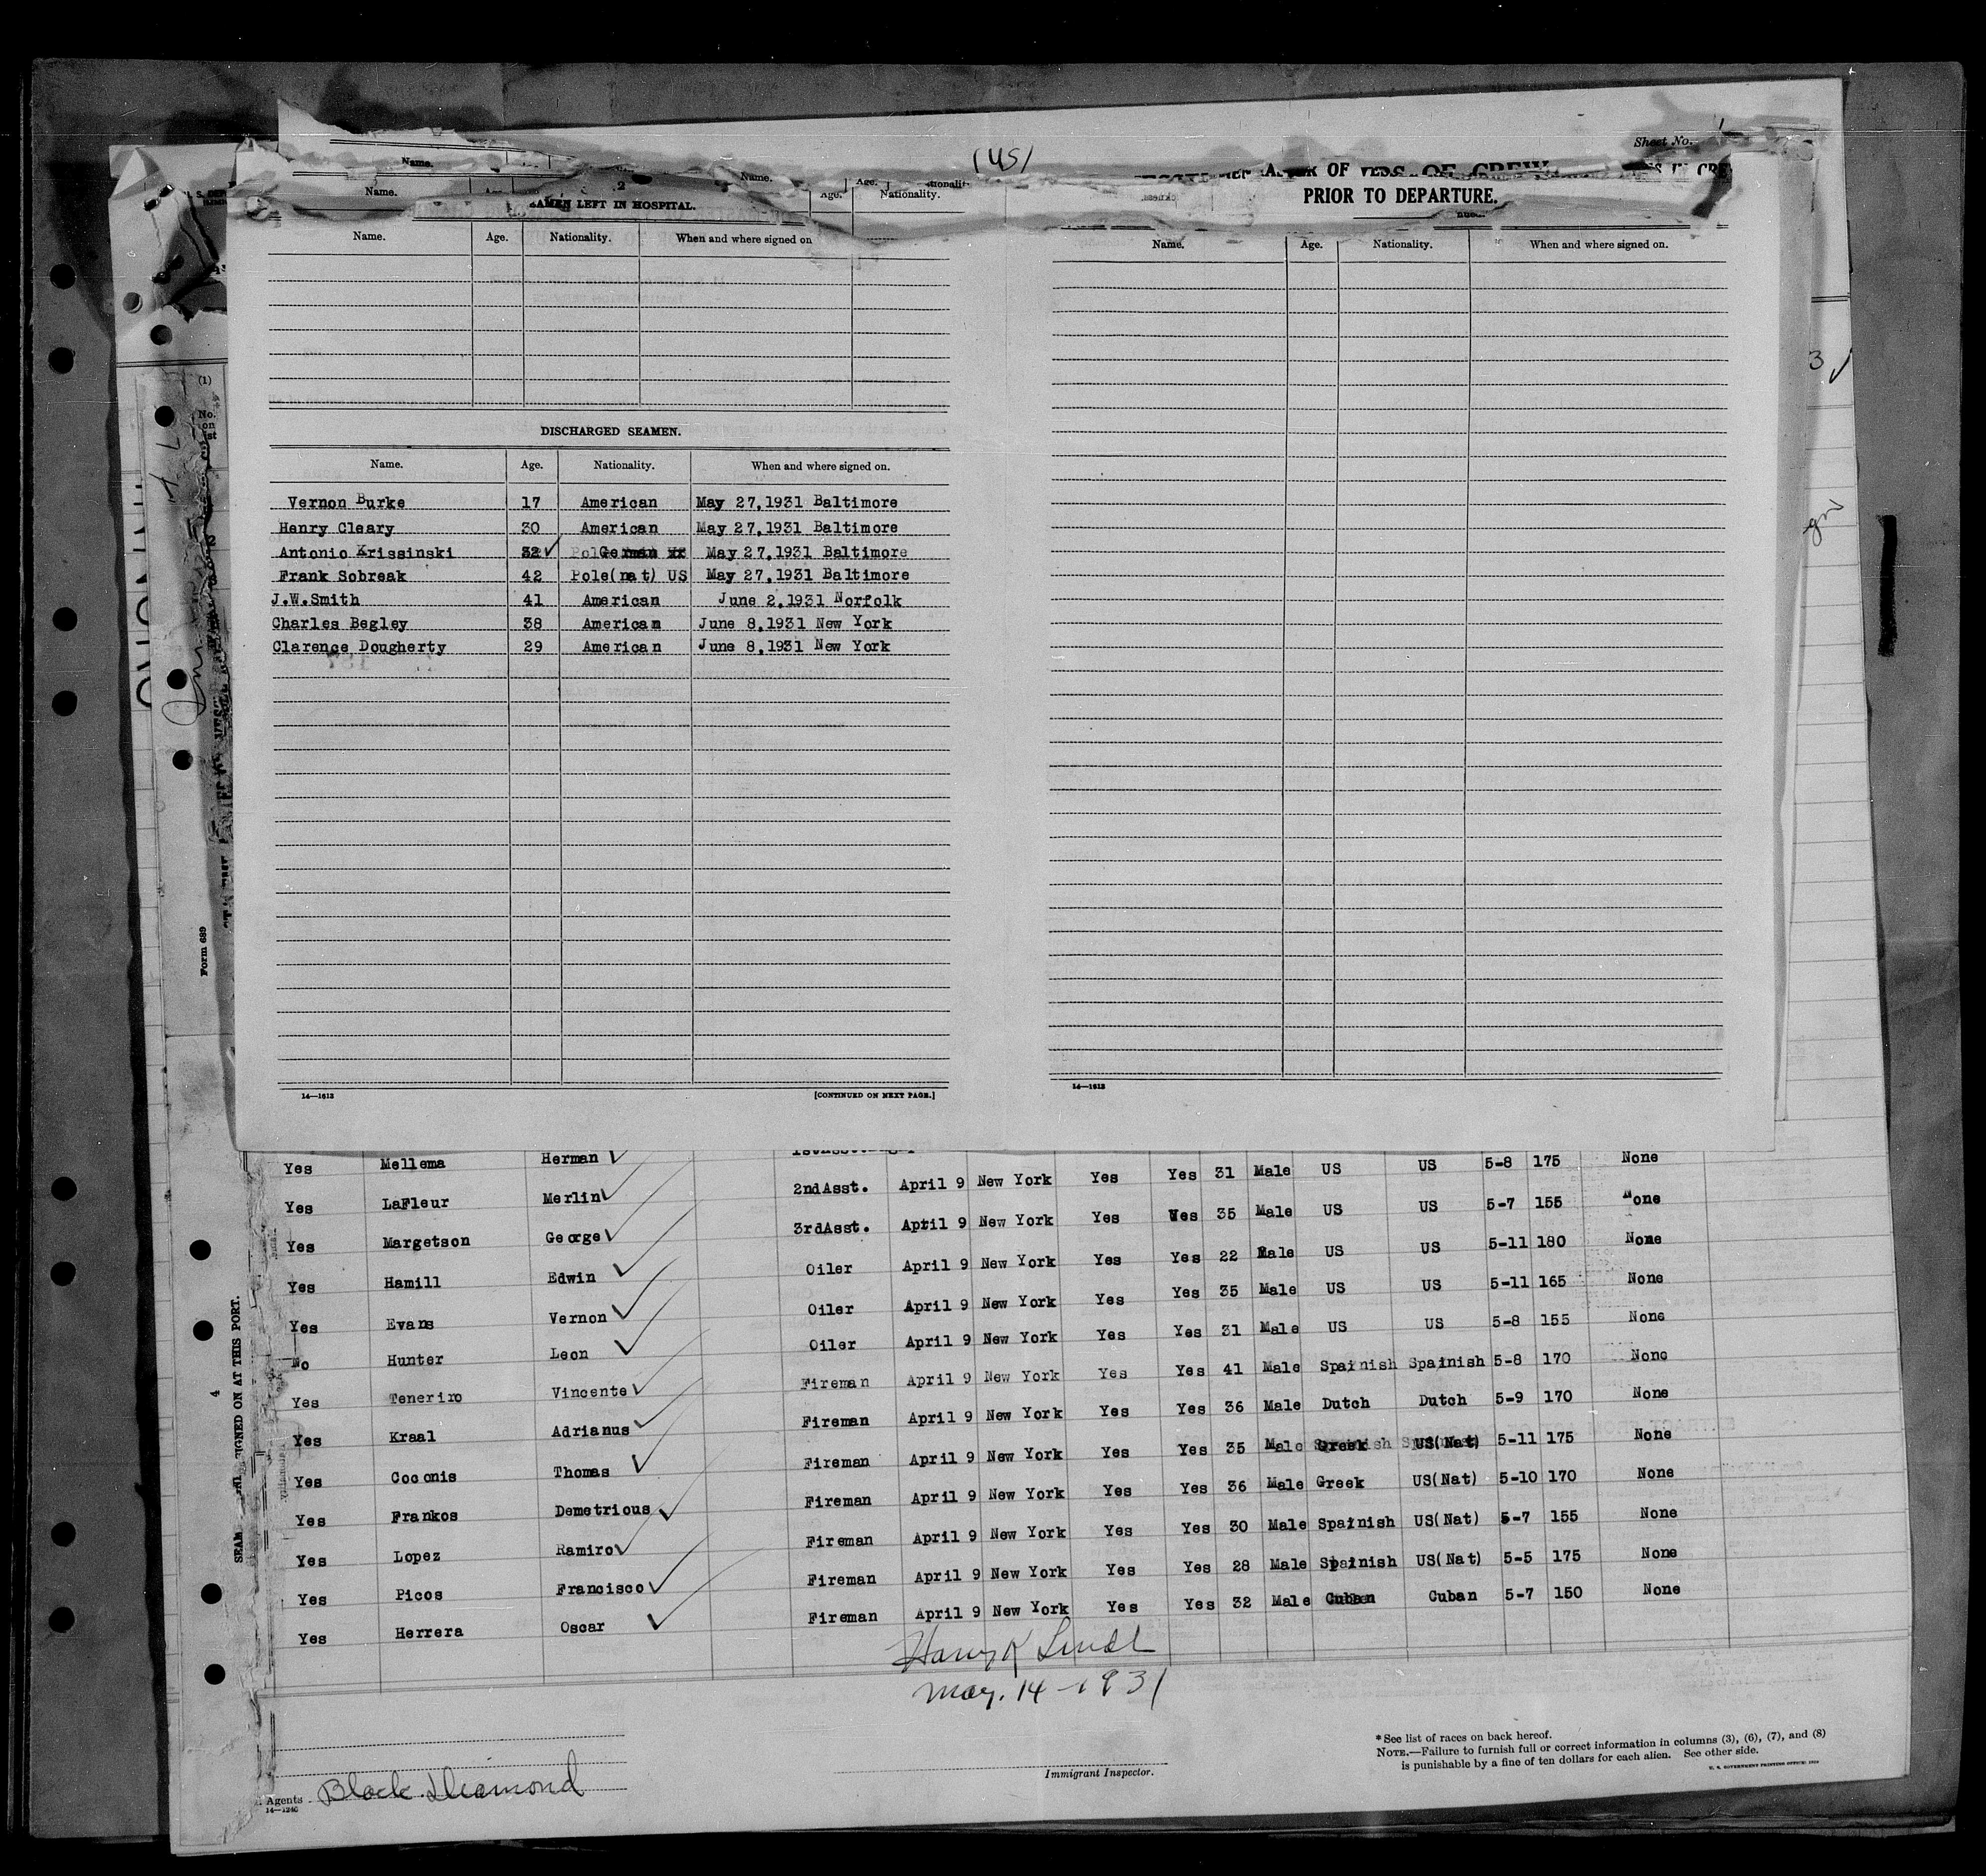 (US)
Sheet No.
Name.
Name.
Age.
Name.
Age.
Nationality.
2
SEAMEN LEFT IN HOSPITAL.
PRIOR TO DEPARTURE.
Name. Age. Nationality. When and where signed on
Name. Age. Nationality. When and where signed on.
DISCHARGED SEAMEN.
Name. Age. Nationality. When and where signed on.
Vernon Burke 17 American May 27,1931 Baltimore
Henry Cleary 30 American May 27,1931 Baltimore
Antonio Krissinski 32 ✓ German May 27,1931 Baltimore
Frank Sobreak 42 Pole(nat) US May 27,1931 Baltimore
J.W.Smith 41 American June 2,1931 Norfolk
Charles Begley 38 American June 8,1931 New York
Clarence Dougherty 29 American June 8,1931 New York
14—1613 [CONTINUED ON NEXT PAGE.]
14—1613
(1)
No. on
Form 689
3 ✓
4
SIGNED ON AT THIS PORT.
Yes Mellema Herman ✓
Yes LaFleur Merlin ✓ 2ndAsst. April 9 New York Yes Yes 31 Male US US 5-8 175 None
Yes Margetson George ✓ 3rdAsst. April 9 New York Yes Yes 35 Male US US 5-7 155 None
Yes Hamill Edwin ✓ Oiler April 9 New York Yes Yes 22 Male US US 5-11 180 None
Yes Evans Vernon ✓ Oiler April 9 New York Yes Yes 35 Male US US 5-11 165 None
No Hunter Leon ✓ Oiler April 9 New York Yes Yes 31 Male US US 5-8 155 None
Yes Teneriro Vincente ✓ Fireman April 9 New York Yes Yes 41 Male Spainish Spainish 5-8 170 None
Yes Kraal Adrianus ✓ Fireman April 9 New York Yes Yes 36 Male Dutch Dutch 5-9 170 None
Yes Coconis Thomas ✓ Fireman April 9 New York Yes Yes 35 Male Greek US(Nat) 5-11 175 None
Yes Frankos Demetrious ✓ Fireman April 9 New York Yes Yes 36 Male Greek US(Nat) 5-10 170 None
Yes Lopez Ramiro ✓ Fireman April 9 New York Yes Yes 30 Male Spainish US(Nat) 5-7 155 None
Yes Picos Francisco ✓ Fireman April 9 New York Yes Yes 28 Male Spainish US(Nat) 5-5 175 None
Yes Herrera Oscar ✓ Fireman April 9 New York Yes Yes 32 Male Cuban Cuban 5-7 150 None
Harry K
May. 14 - 1931
Agents Black Diamond
14—1240
Immigrant Inspector.
* See list of races on back hereof.
NOTE.—Failure to furnish full or correct information in columns (3), (6), (7), and (8)
is punishable by a fine of ten dollars for each alien. See other side.
U. S. GOVERNMENT PRINTING OFFICE: